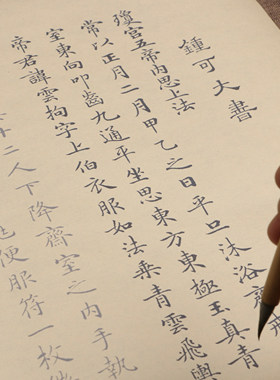 鍾可大書
瓊宮五帝內思上法
常以正月二月甲乙之日平旦沐浴齋戒
室東向叩齒九通平坐思東方東極玉真青
帝君諱雲拘字上伯衣服如法乘青雲飛輿
十二人下降齋室之內手執
便服符一枚